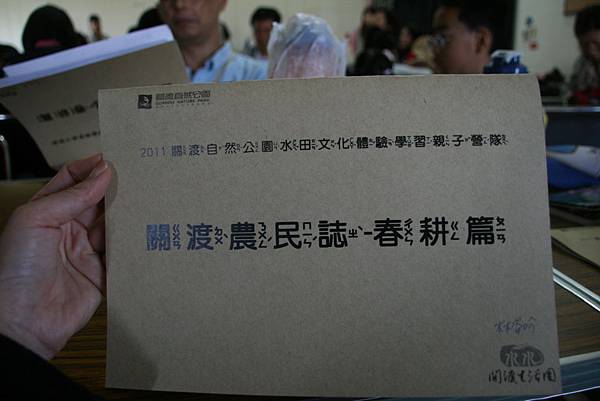 關渡自然公園
GUANDU NATURE PARK
2011 關渡自然公園水田文化體驗學習親子營隊
關ㄍㄨㄢ渡ㄉㄨˋ農ㄋㄨㄥˊ民ㄇㄧㄣˊ誌ㄓˋ-春ㄔㄨㄣ耕ㄍㄥ篇ㄆㄧㄢ
水水
關渡生活圈